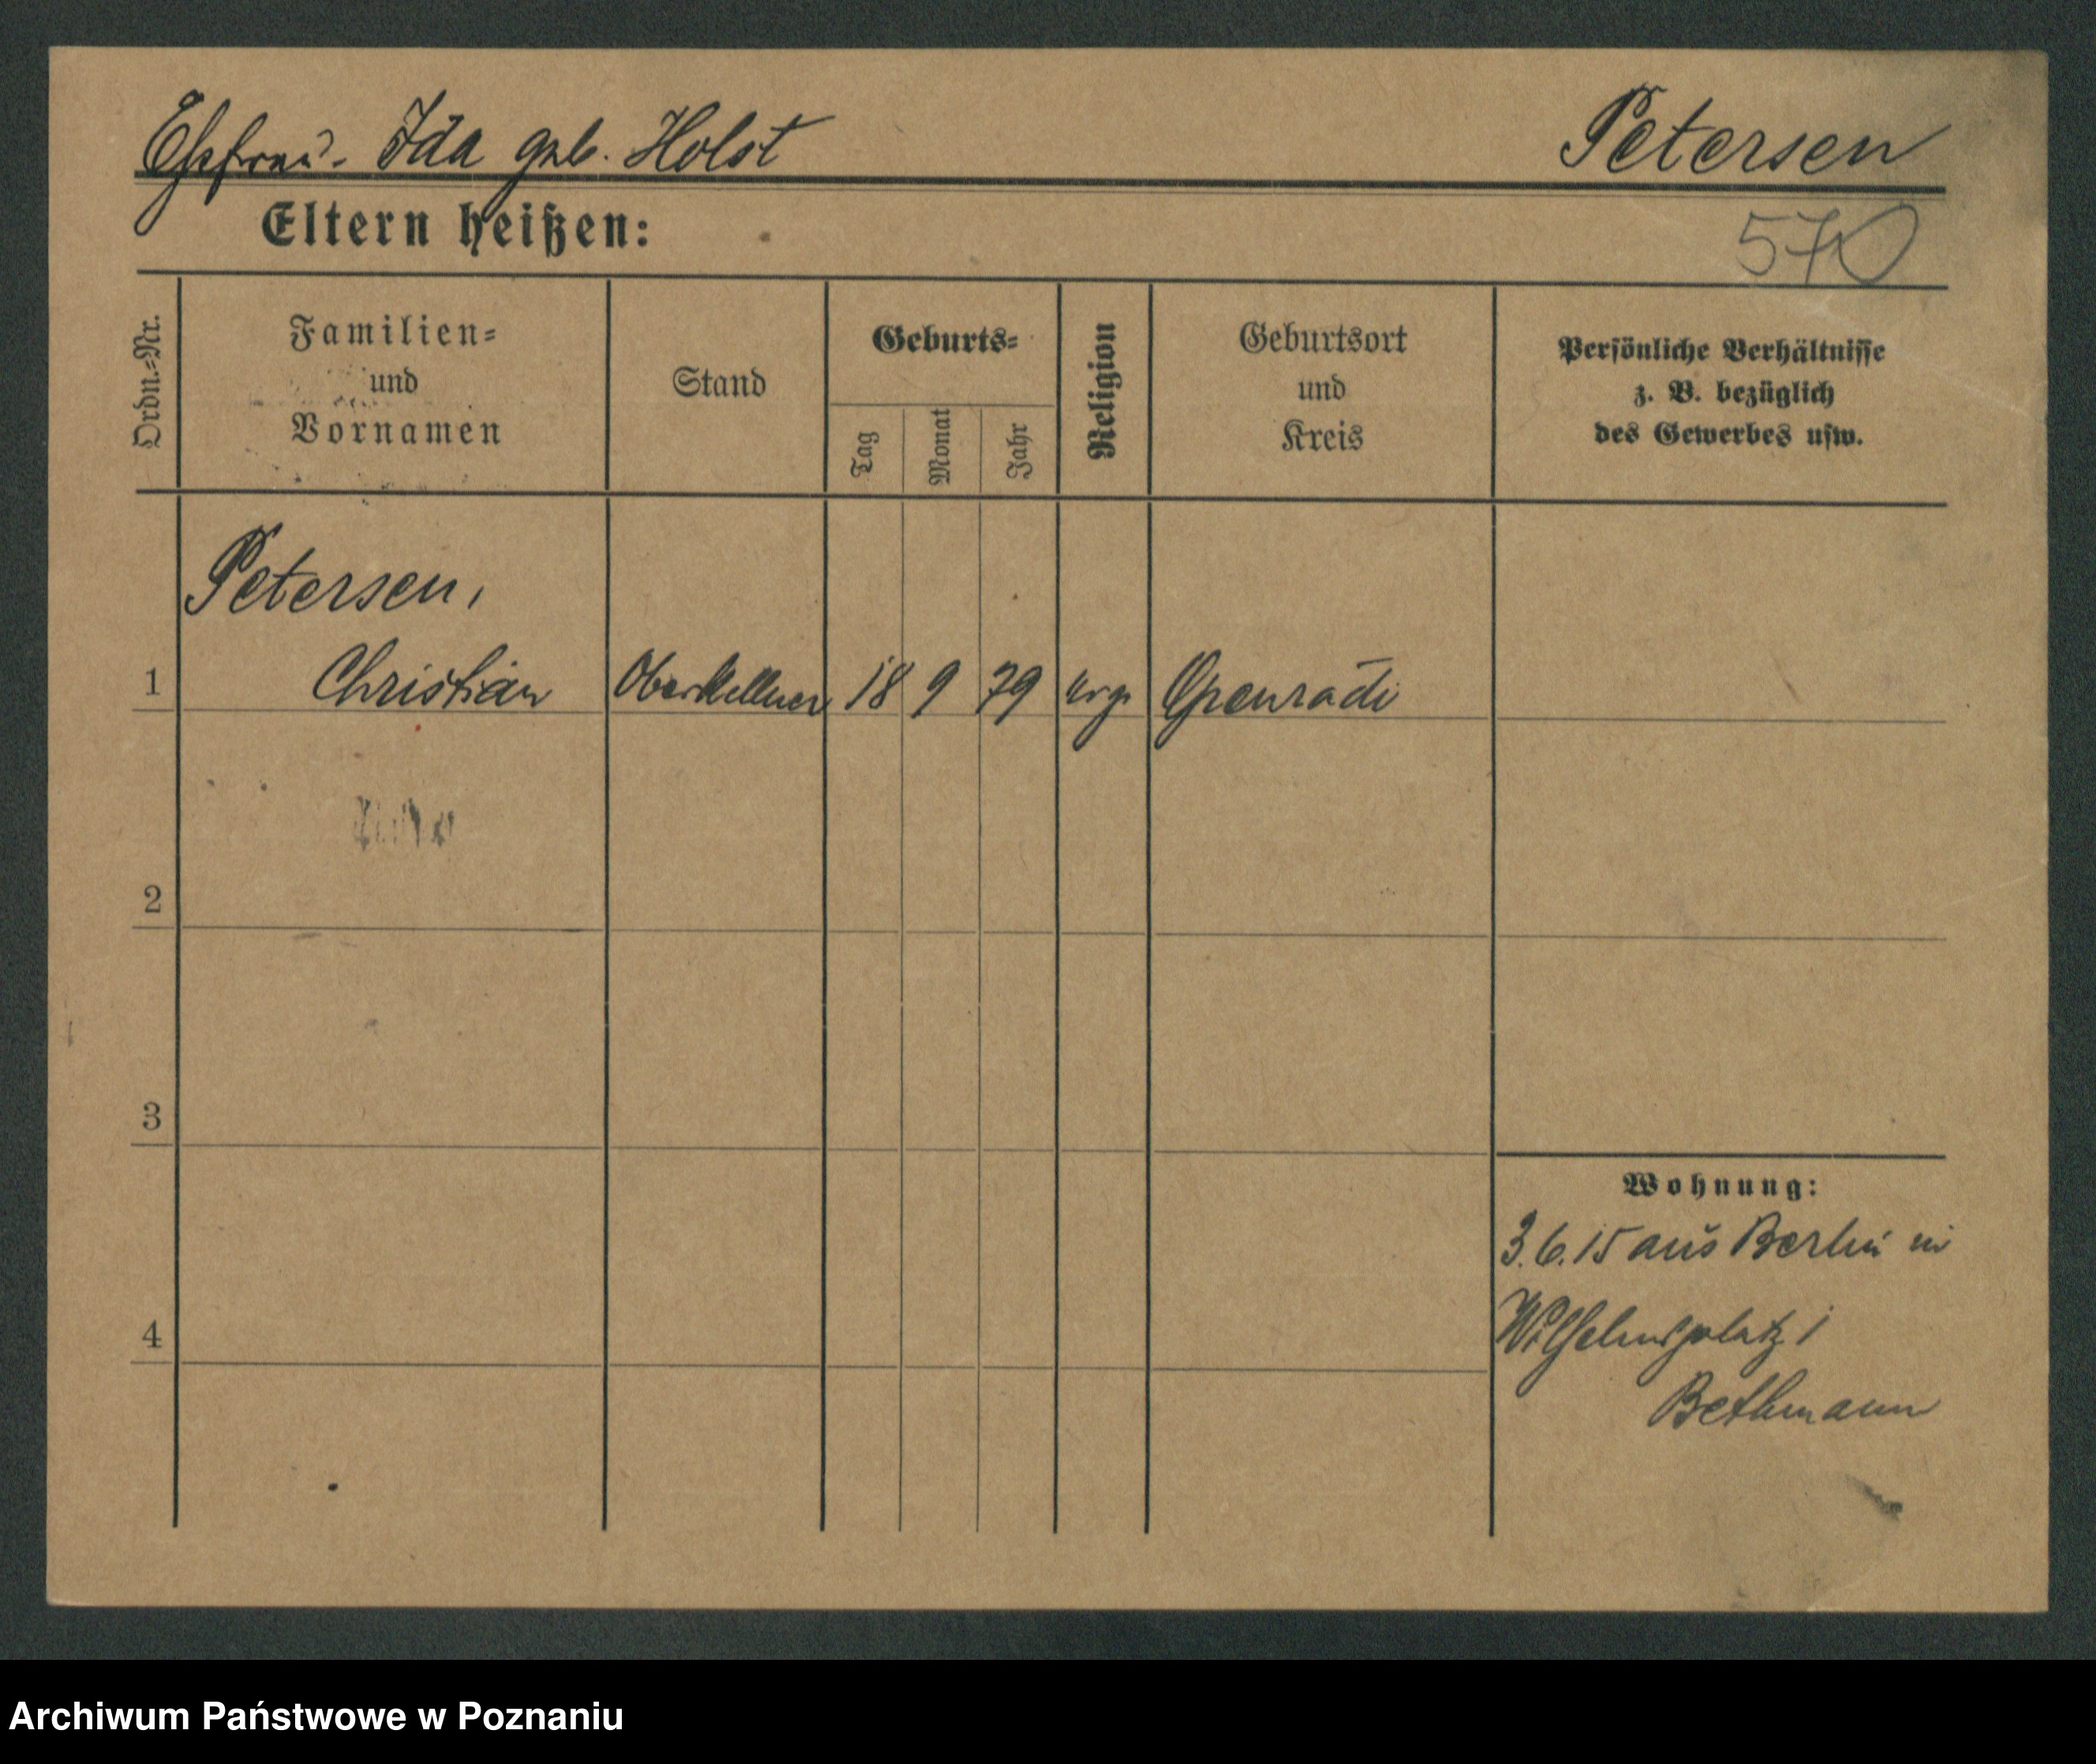 Ehefrau. Ida geb. Holst
Petersen
Eltern heißen:
570
Ordn.-Nr.
Familien-
und
Vornamen
Stand
Geburts-
Tag
Monat
Jahr
Religion
Geburtsort
und
Kreis
Persönliche Verhältnisse
z. B. bezüglich
des Gewerbes usw.
Petersen,
1 Christian Oberkellner 18 9 79 evg.
2
3
4
Wohnung:
3.6.15 aus Berlin in
Wilhelmsplatz 1
Bethmann
Archiwum Państwowe w Poznaniu